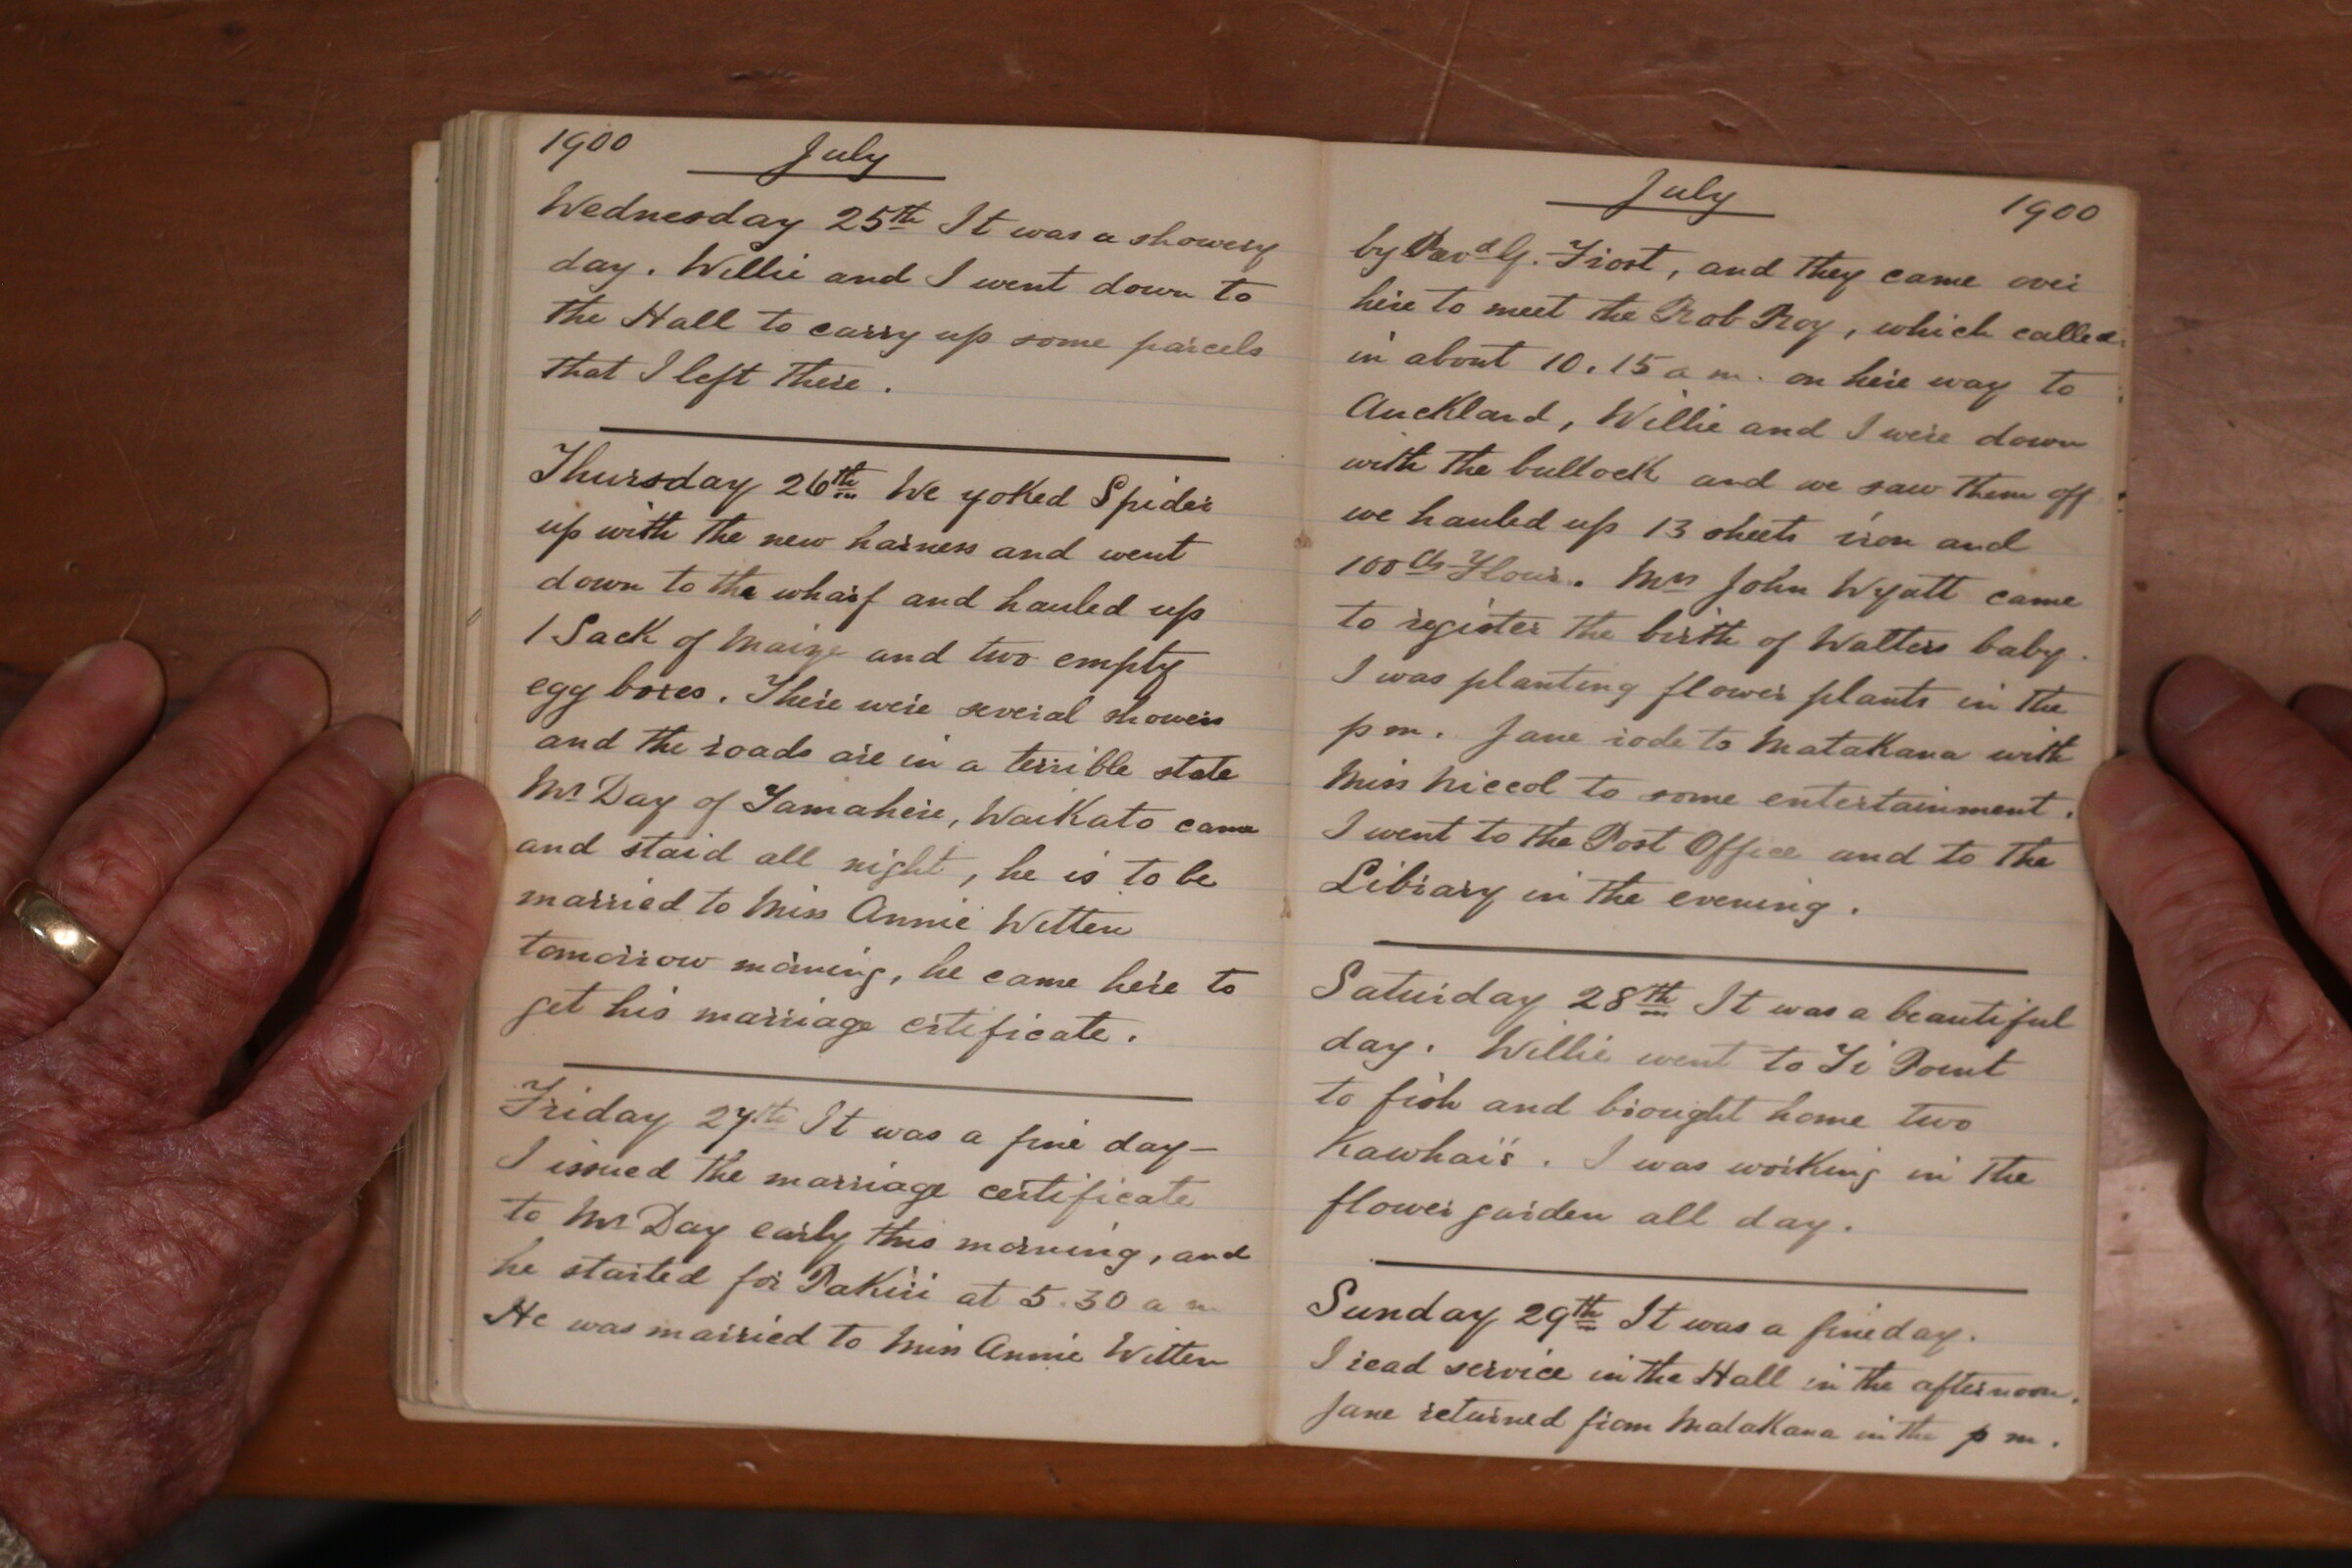 1900 July
Wednesday 25th It was a showery
day. Willie and I went down to
the Hall to carry up some parcels
that I left there.
Thursday 26th We yoked Spider
up with the new harness and went
down to the wharf and hauled up
1 Sack of Maize and two empty
egg boxes. There were several showers
and the roads are in a terrible state
Mr Day of Tamahere, Waikato came
and staid all night, he is to be
married to Miss Annie Witten
tomorrow morning, he came here to
get his marriage certificate.
Friday 27th It was a fine day-
I issued the marriage certificate
to Mr Day early this morning, and
he started for Pakiri at 5.30 a m
He was married to Miss Annie Witten
July 1900
by Revd G. Frost, and they came over
here to meet the Rob Roy, which called
in about 10.15 a m. on here way to
Auckland, Willie and I were down
with the bullock and we saw them off
we hauled up 13 sheets iron and
100 lbs Flour. Mrs John Wyatt came
to register the birth of Walters baby.
I was planting flower plants in the
p m. Jane rode to Matakana with
Miss Niccol to some entertainment.
I went to the Post Office and to the
Library in the evening.
Saturday 28th It was a beautiful
day. Willie went to Ti Point
to fish and brought home two
Kawhais. I was working in the
flower garden all day.
Sunday 29th It was a fine day.
I read service in the Hall in the afternoon.
Jane returned from Matakana in the p m.